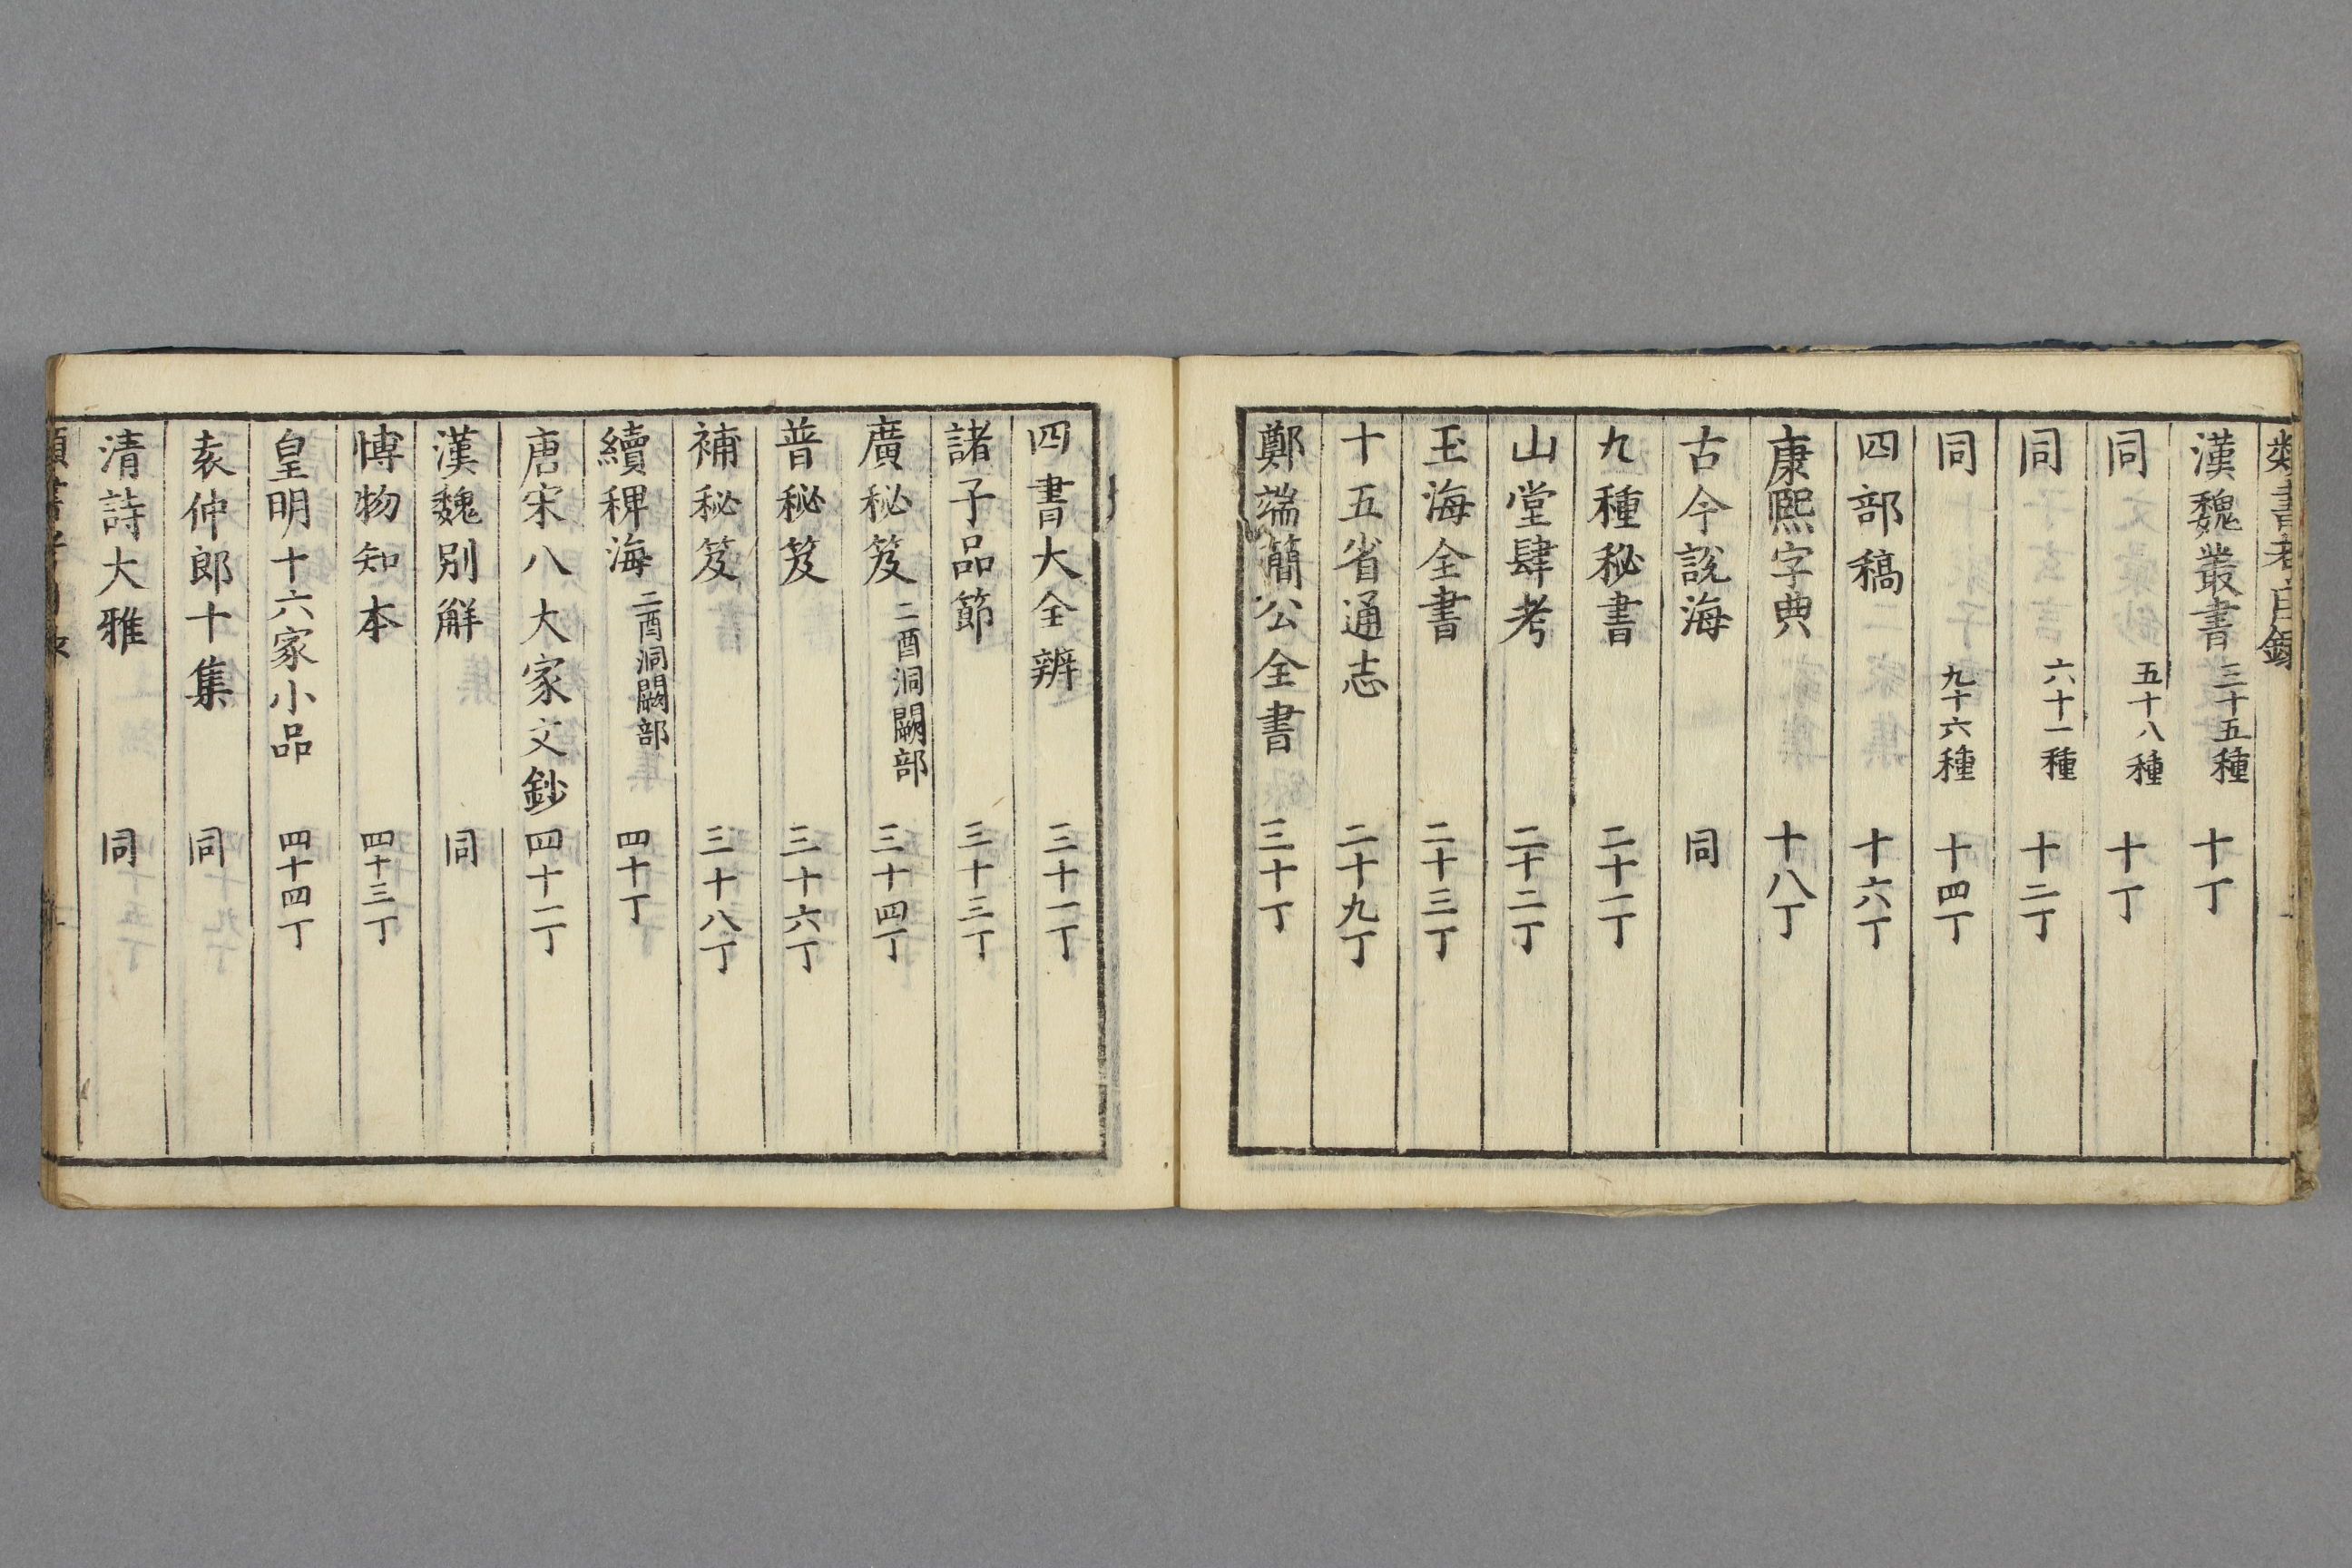 類書考目録
漢魏叢書 三十五種 十丁
同 五十八種 十丁
同 六十一種 十二丁
同 九十六種 十四丁
四部稿 十六丁
康熙字典 十八丁
古今説海 同
九種秘書 二十一丁
山堂肆考 二十二丁
玉海全書 二十三丁
十五省通志 二十九丁
鄭端簡公全書 三十丁
四書大全辨 三十一丁
諸子品節 三十三丁
廣秘笈 二酉洞闕部 三十四丁
普秘笈 三十六丁
補秘笈 三十八丁
續稗海 二酉洞闕部 四十丁
唐宋八大家文鈔 四十二丁
漢魏別解 同
博物知本 四十三丁
皇明十六家小品 四十四丁
袁仲郎十集 同
清詩大雅 同